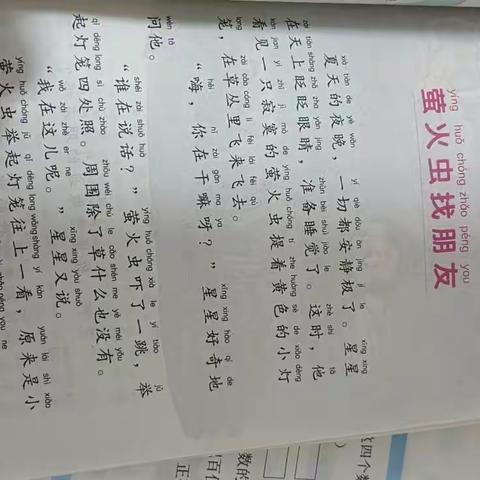 yíng huǒ chóng zhǎo péng you
萤火虫找朋友
xià tiān de yè wǎn yí qiè dōu ān jìng jí le xīng xing
夏天的夜晚，一切都安静极了。星星
zài tiān shàng zhǎ zhǎ yǎn jing zhǔn bèi shuì jiào le zhè shí tā
在天上眨眨眼睛，准备睡觉了。这时，他
kàn jiàn yì zhī jì mò de yíng huǒ chóng tí zhe huáng sè de xiǎo dēng
看见一只寂寞的萤火虫提着黄色的小灯
long zài cǎo cóng lǐ fēi lái fēi qù
笼，在草丛里飞来飞去。
hēi nǐ zài gàn ma ya xīng xing hào qí de
“嗨，你在干嘛呀？”星星好奇地
wèn tā
问他。
shéi zài shuō huà yíng huǒ chóng xià le yí tiào jǔ
“谁在说话？”萤火虫吓了一跳，举
qǐ dēng long sì chù zhào zhōu wéi chú le cǎo shén me yě méi yǒu
起灯笼四处照。周围除了草什么也没有。
wǒ zài zhè er ne xīng xing yòu shuō
“我在这儿呢。”星星又说。
yíng huǒ chóng jǔ qǐ dēng long wǎng shàng yí kàn yuán lái shì xiǎo
萤火虫举起灯笼往上一看，原来是小